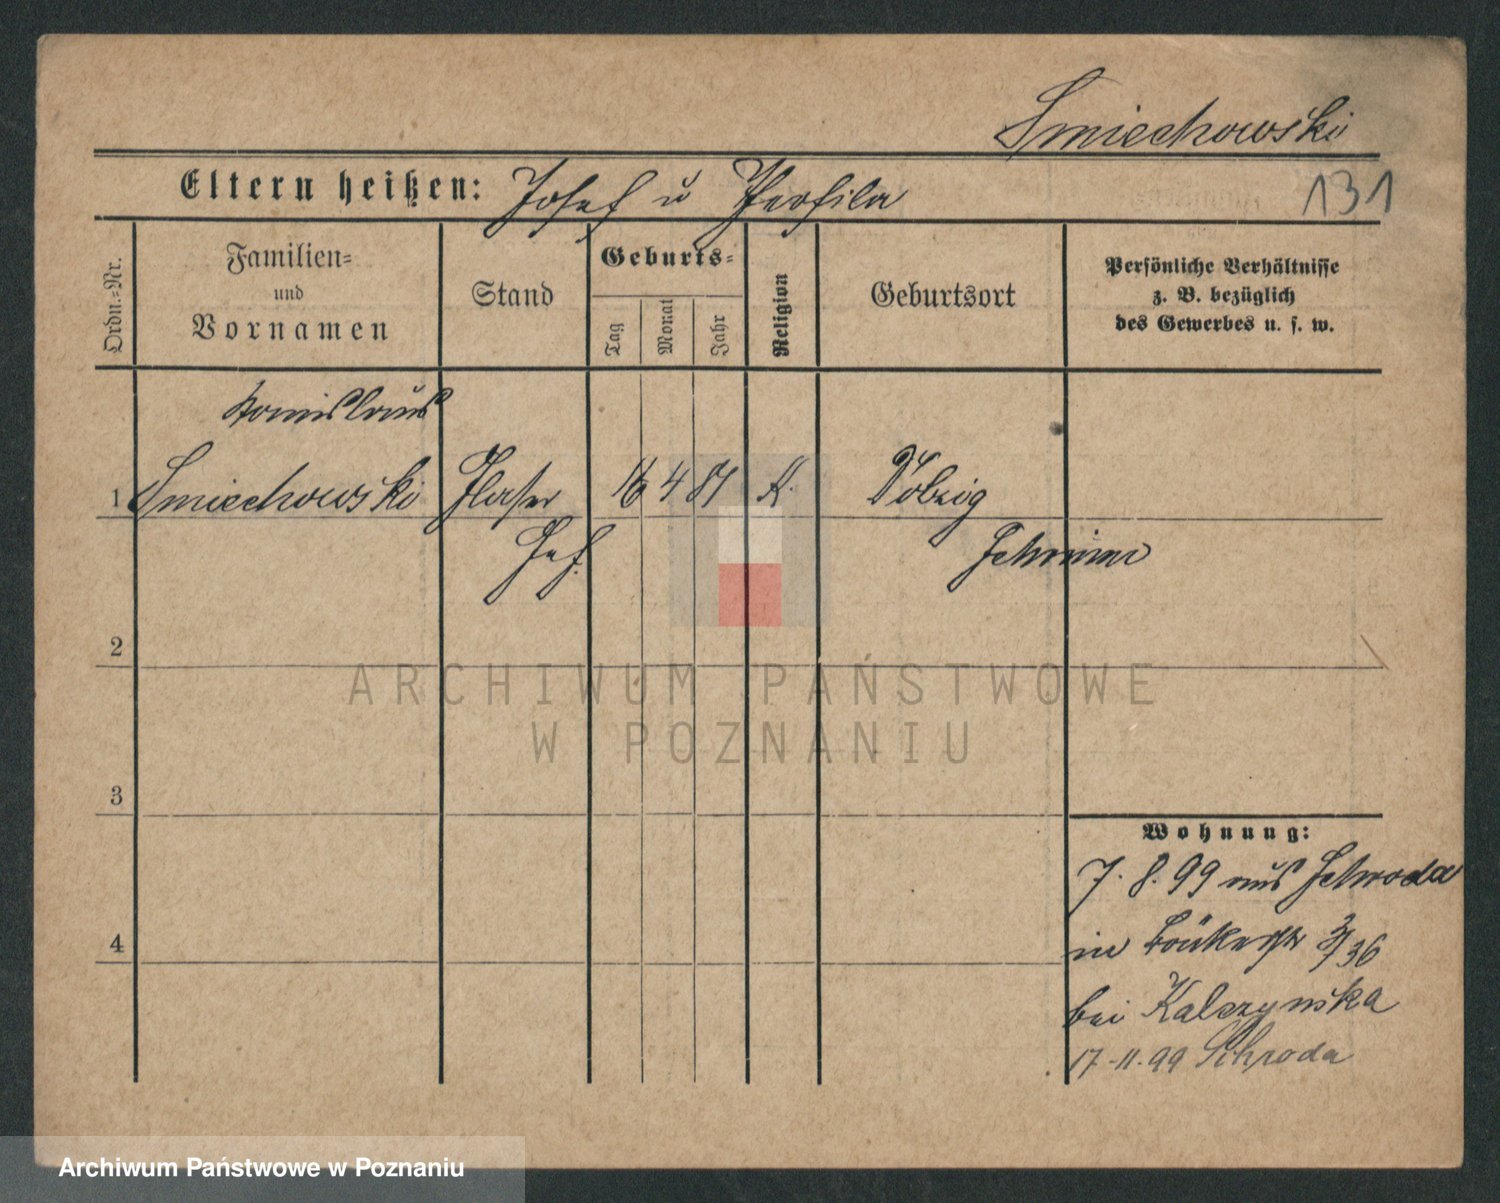 Smiechowski
Eltern heißen: Josef u
131
Ordn.-Nr.
Familien-
und
Vornamen
Stand
Geburts-
Tag
Monat
Jahr
Religion
Geburtsort
Persönliche Verhältnisse
z. B. bezüglich
des Gewerbes u. s. w.
Stanislaus
1 Smiechowski Glaser 16 4 81 K.
Gef. Schrimm
2
ARCHIWUM PAŃSTWOWE
W POZNANIU
3
Wohnung:
7. 8. 99 aus Schroda
4
in 3/36
bei Kalczynska
17-11.99 Schroda
Archiwum Państwowe w Poznaniu